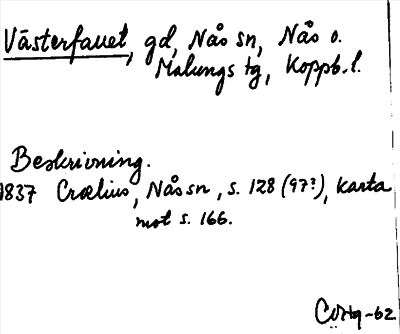 Västerfallet, gd, Nås sn, Nås o.
Malungs tg, Koppb. l.
Beskrivning.
1837 Crælius, Nås sn, s. 128 (97?), karta
mot s. 166.